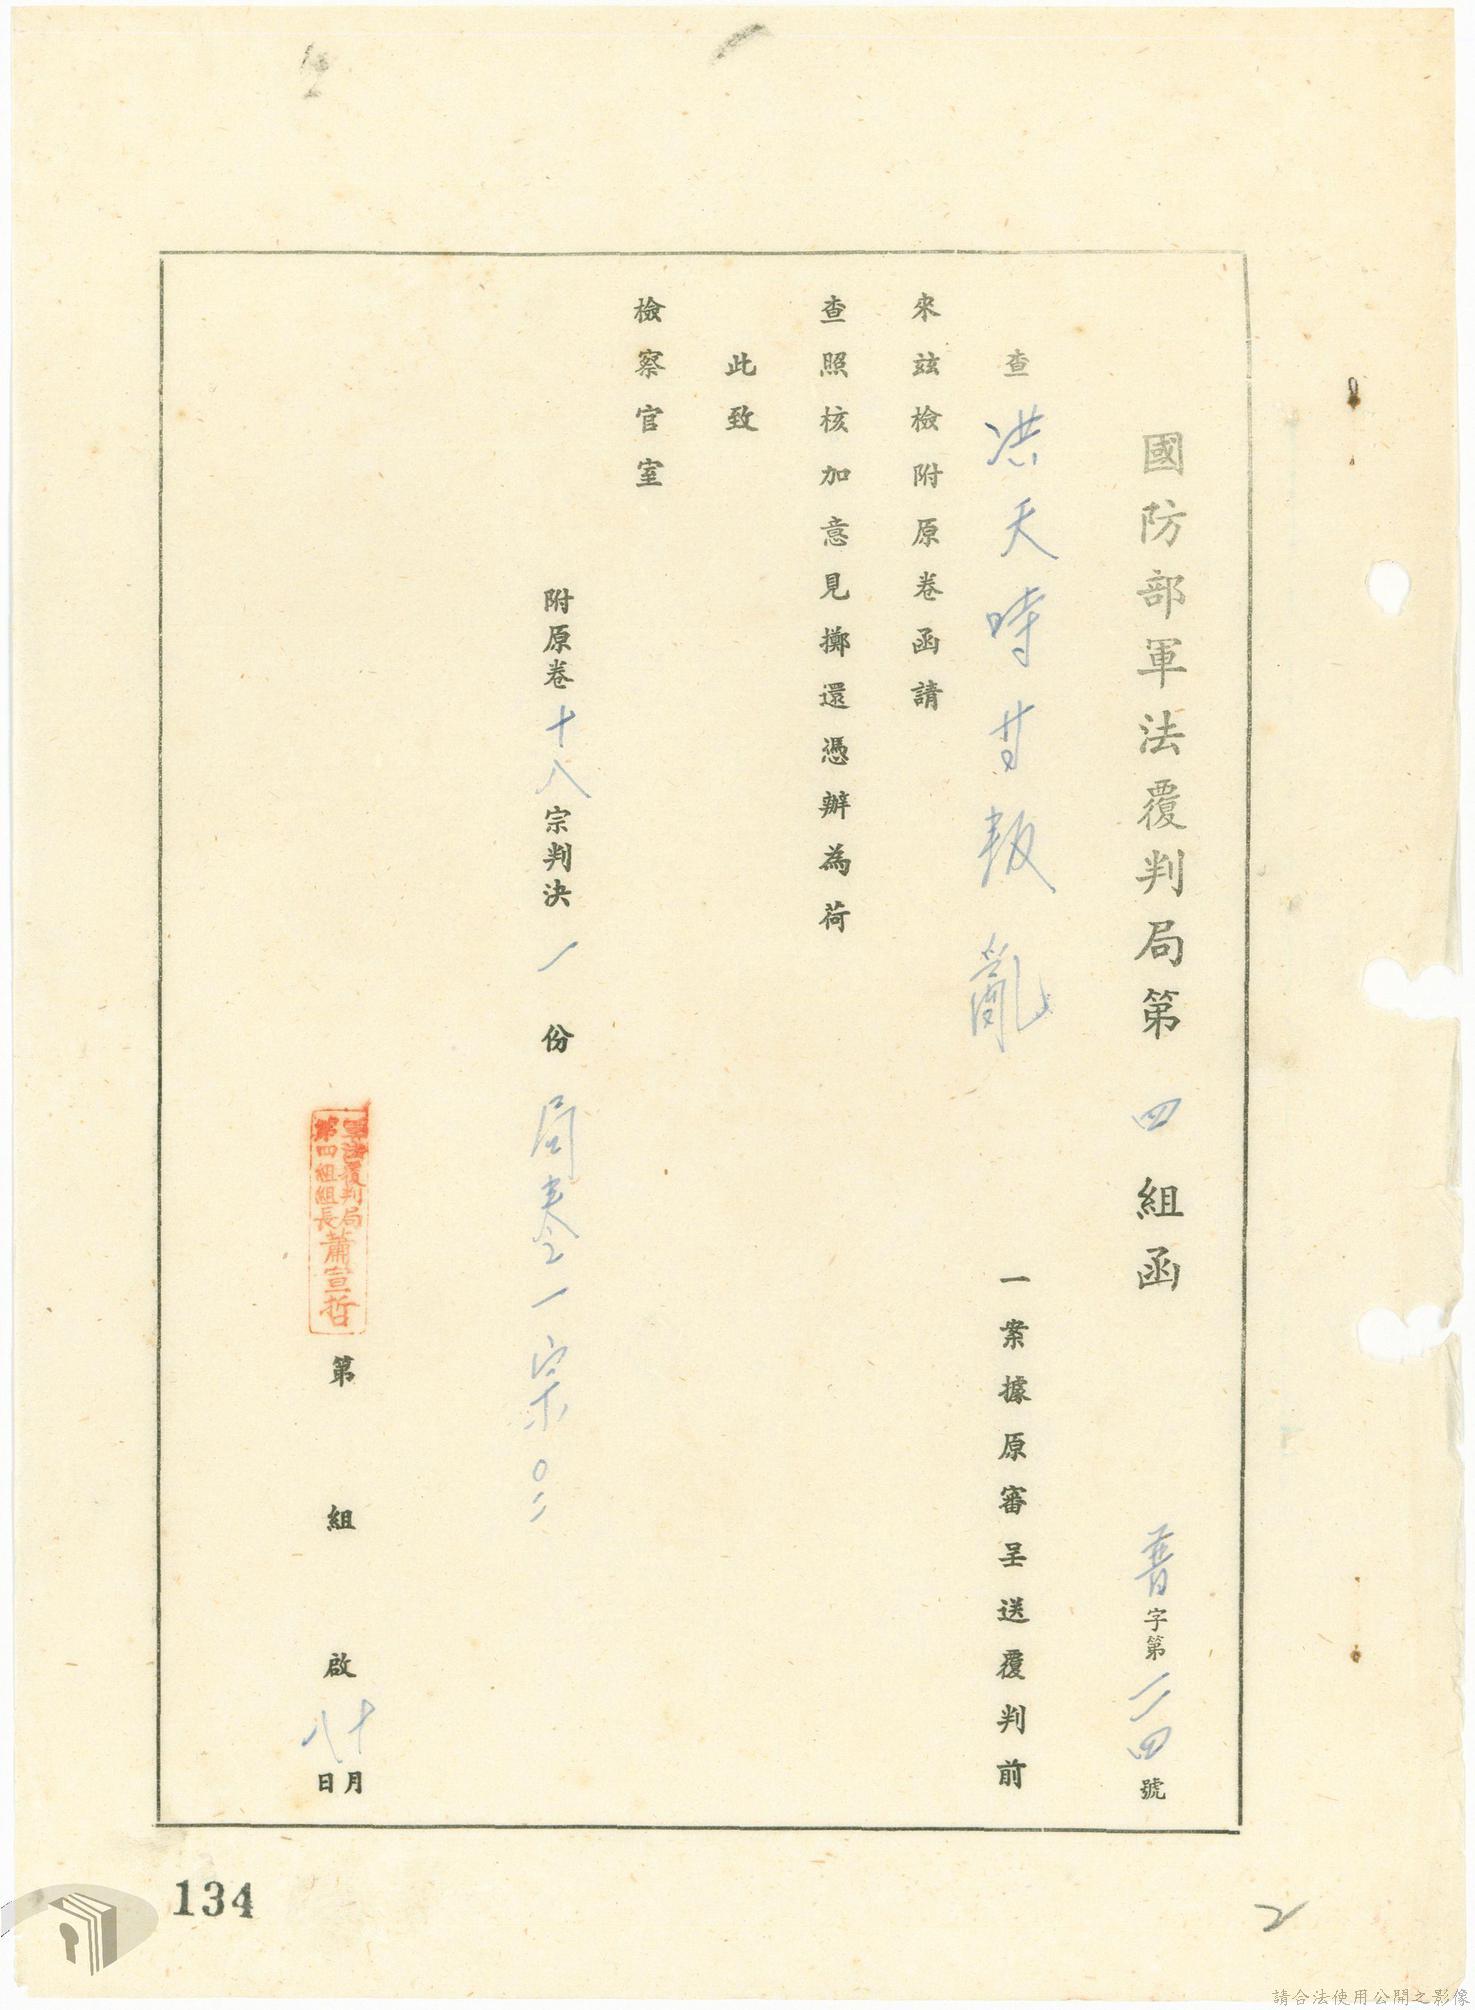 國防部軍法覆判局第四組函
普字第二一四號
查洪天時廿叛亂一案據原審呈送覆判前
來茲檢附原卷函請
查照核加意見擲還憑辦為荷
此致
檢察官室
附原卷十八宗判決一份局卷一宗
軍法覆判局
第四組組長蕭宣哲
第 組 啟
十月
八日
134
2
請合法使用公開之影像